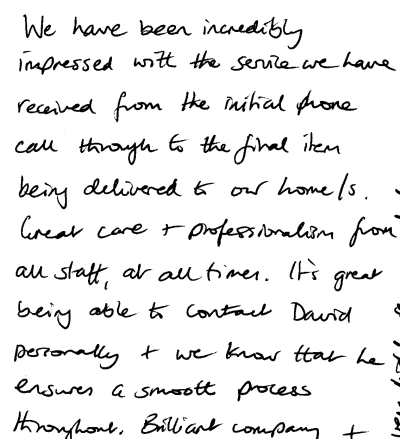 We have been incredibly
impressed with the service we have
received from the initial phone
call through to the final item
being delivered to our home/s.
Great care + professionalism from
all staff, at all times. It's great
being able to contact David
personally + we know that he
ensures a smooth process
throughout. Brilliant company +